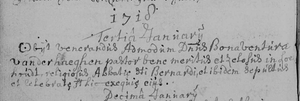 1718
Tertia January
Obijt venerandus Admodum Dnus Bonaventura
vanderhaeghen pastor bene meritus et zelosus in
religiosus Abbatiæ Sti Bernardi, et ibidem depultus
et celebratæ exequiæ ejus.
Decima January